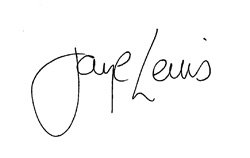 Jaye Lewis